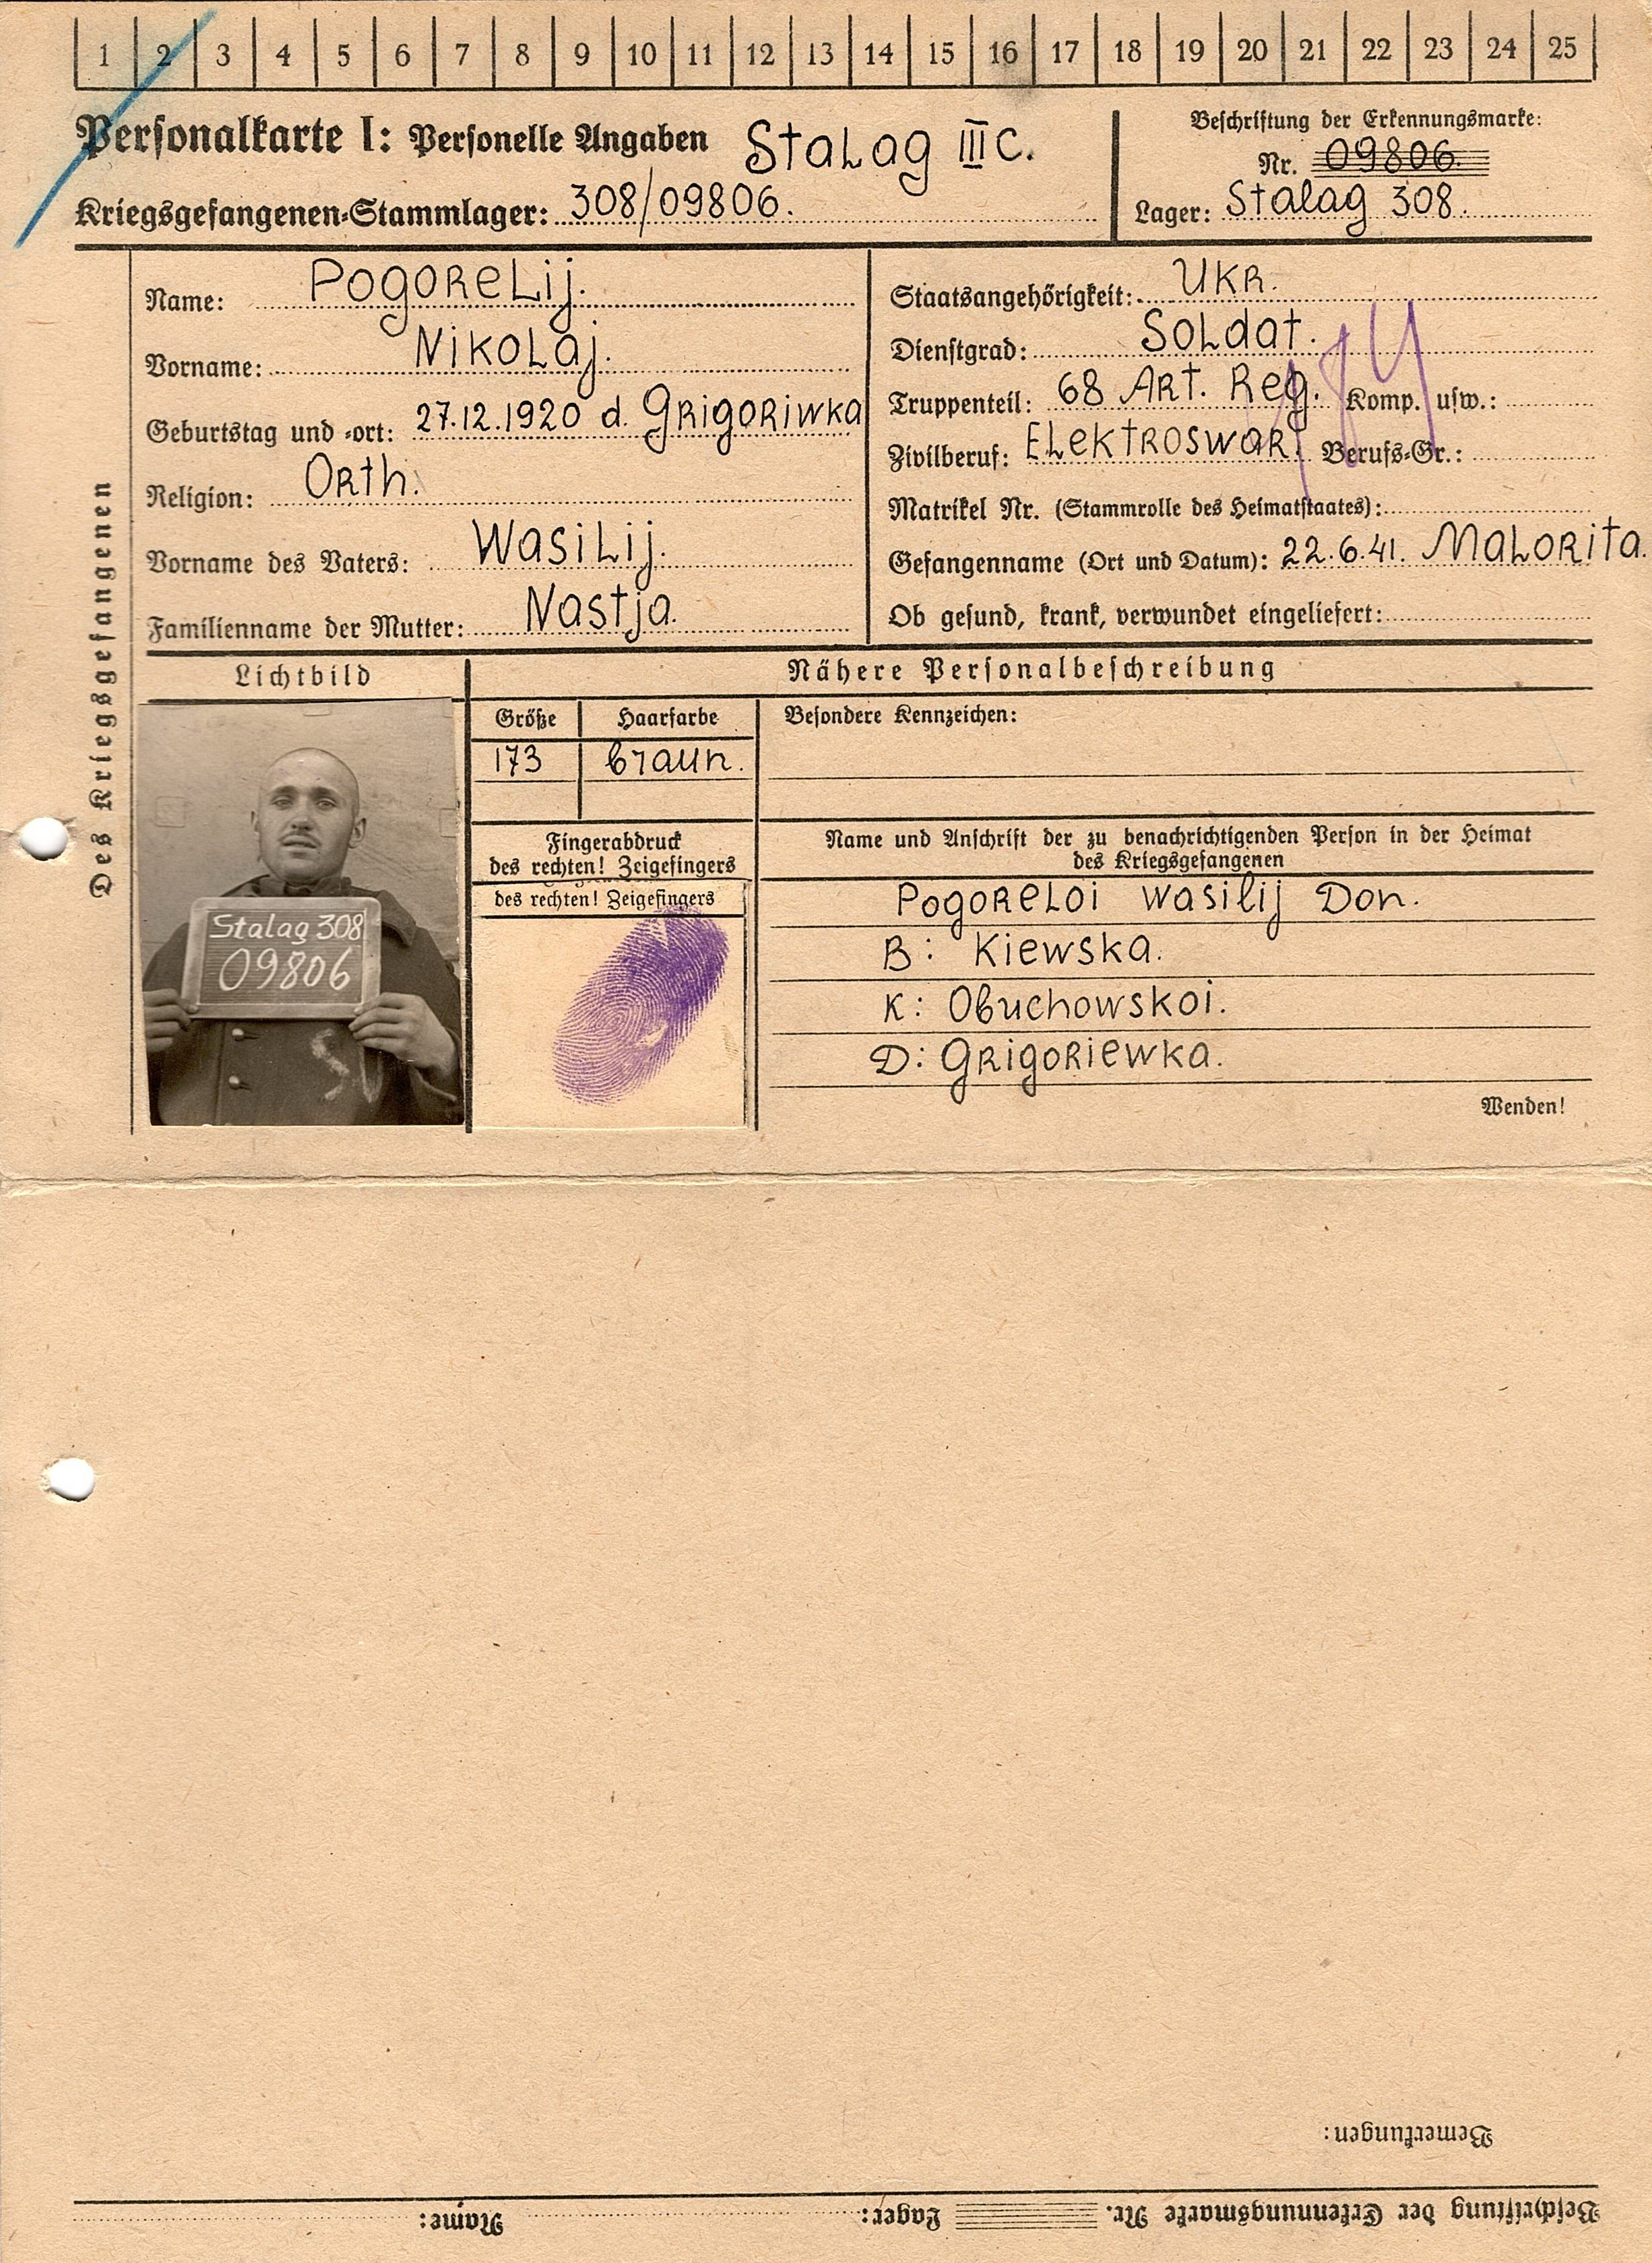 1 2 3 4 5 6 7 8 9 10 11 12 13 14 15 16 17 18 19 20 21 22 23 24 25
Personalkarte I: Personelle Angaben Stalag III C.
Kriegsgefangenen-Stammlager: 308/09806.
Beschriftung der Erkennungsmarke:
Nr. 09806.
Lager: Stalag 308.
Des Kriegsgefangenen
Name: Pogorelij.
Vorname: Nikolaj.
Geburtstag und -ort: 27.12.1920 d. Grigoriwka
Religion: Orth.
Vorname des Vaters: Wasilij.
Familienname der Mutter: Nastja.
Staatsangehörigkeit: Ukr.
Dienstgrad: Soldat.
Truppenteil: 68 Art. Reg. Komp. usw.:
Zivilberuf: Elektroswar. Berufs-Gr.:
Matrikel Nr. (Stammrolle des Heimatstaates):
Gefangennahme (Ort und Datum): 22.6.41. Malorita.
Ob gesund, krank, verwundet eingeliefert:
Lichtbild
Stalag 308
09806
Nähere Personalbeschreibung
Größe Haarfarbe
173 braun.
Fingerabdruck
des rechten! Zeigefingers
des rechten! Zeigefingers
Besondere Kennzeichen:
Name und Anschrift der zu benachrichtigenden Person in der Heimat
des Kriegsgefangenen
Pogoreloi Wasilij Don.
B: Kiewska.
K: Obuchowskoi.
D: Grigoriewka.
Wenden!
Bemerkungen:
Beschriftung der Erkennungsmarke Nr. Lager: Name: